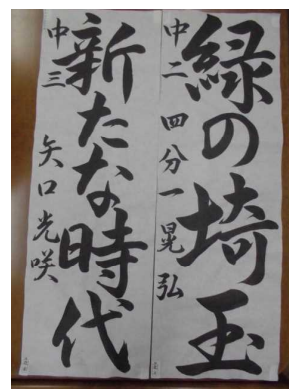 緑の埼玉
中二 四分一晃弘
新たな時代
中三 矢口光咲